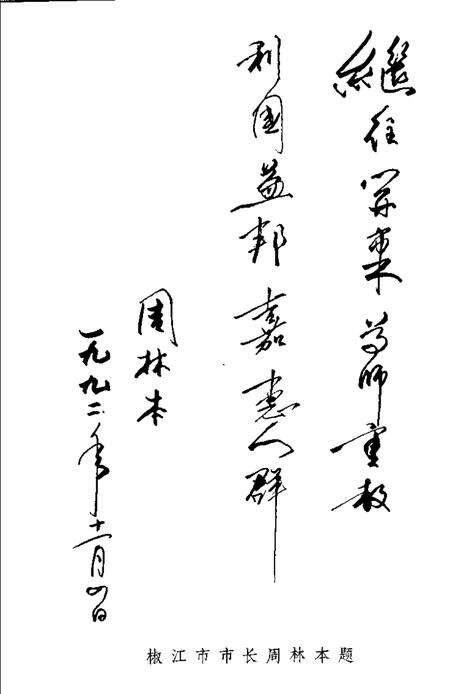 继往开来尊师重教
利国益邦嘉惠人群
周林本
一九九二年十一月四日
椒江市市长周林本题